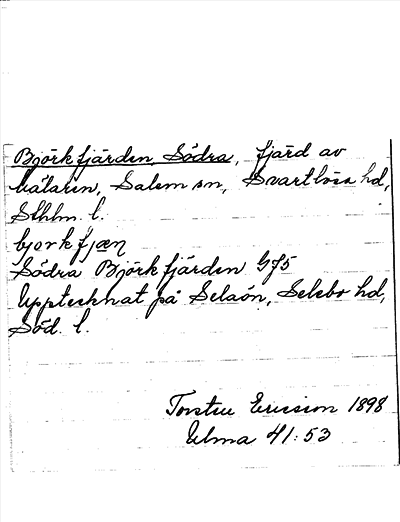 Björkfjärden, Södra, fjärd av
Mälaren, Salem sn, Svartlösa hd,
Sthlm. l.
bjorkfjæn
Södra Björkfjärden GJ5
Upptecknat på Selaön, Selebo hd,
Söd. l.
Torsten Ericsson 1898
Ulma 41:53